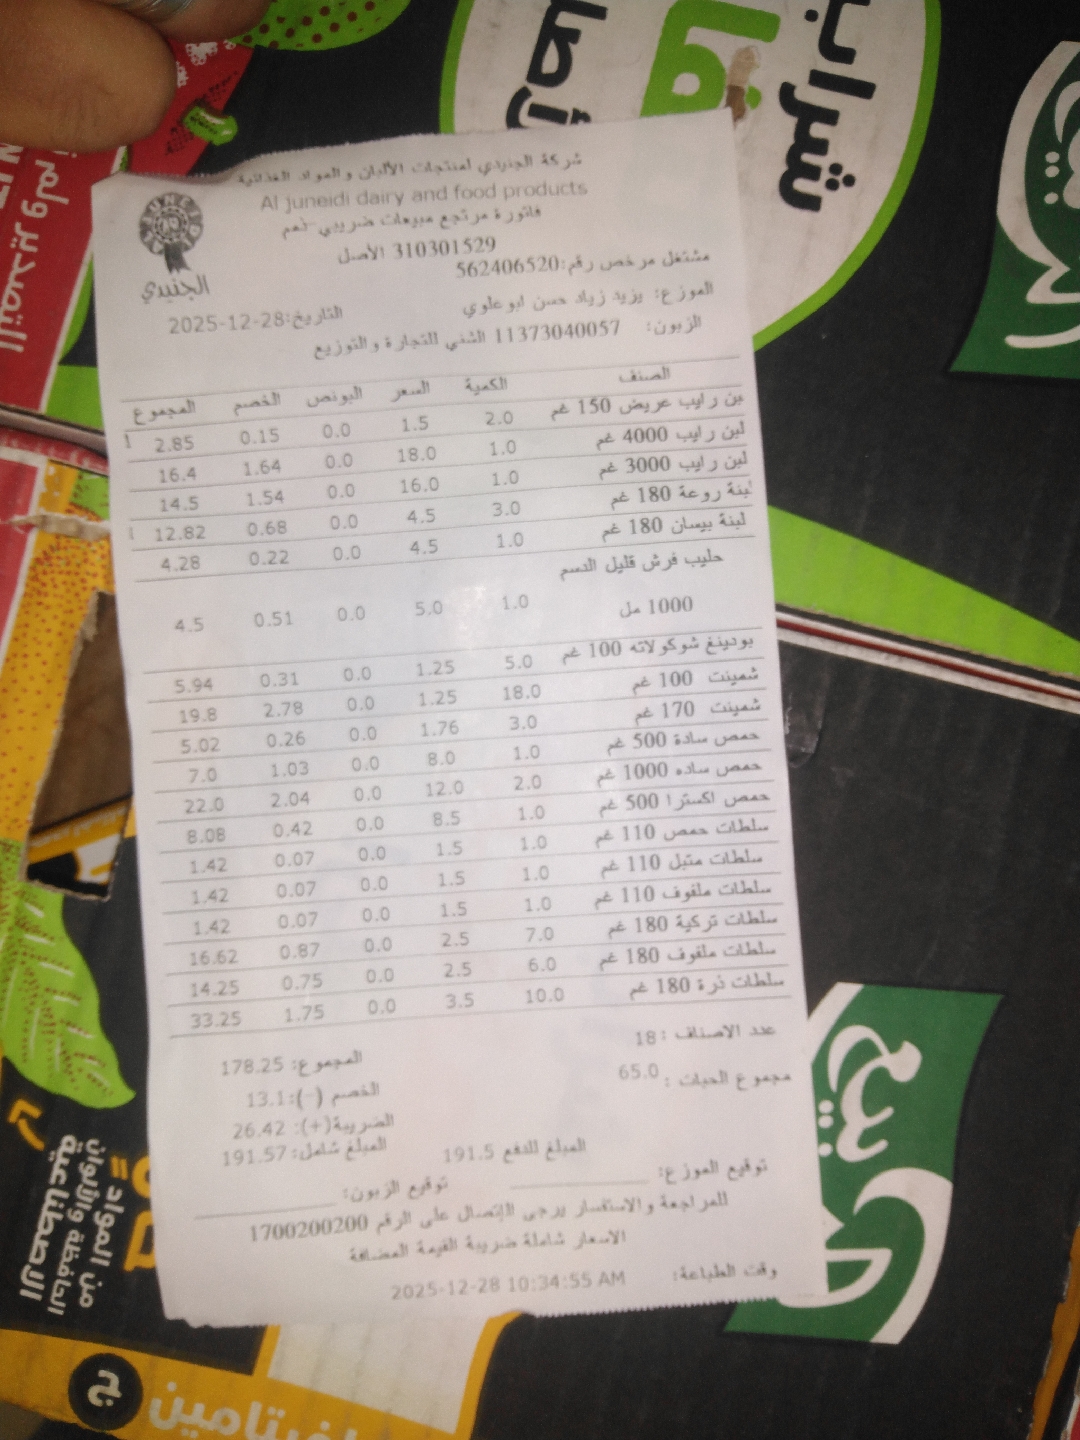 شركة الجنيدي لمنتجات الألبان والمواد الغذائية
Al juneidi dairy and food products
فاتورة مرتجع مبيعات ضريبي-نعم
310301529 الأصل
مشتغل مرخص رقم:562406520
الجنيدي
الموزع: يزيد زياد حسن ابو علوي
التاريخ:2025-12-28
الزبون: 11373040057 الشني للتجارة والتوزيع
الصنف الكمية السعر البونص الخصم المجموع
بن رايب عريض 150 غم 2.0 1.5 0.0 0.15 2.85
لبن رايب 4000 غم 1.0 18.0 0.0 1.64 16.4
لبن رايب 3000 غم 1.0 16.0 0.0 1.54 14.5
لبنة روعة 180 غم 3.0 4.5 0.0 0.68 12.82
لبنة بيسان 180 غم 1.0 4.5 0.0 0.22 4.28
حليب فرش قليل الدسم
1000 مل 1.0 5.0 0.0 0.51 4.5
بودينغ شوكولاته 100 غم 5.0 1.25 0.0 0.31 5.94
شمينت 100 غم 18.0 1.25 0.0 2.78 19.8
شمينت 170 غم 3.0 1.76 0.0 0.26 5.02
حمص سادة 500 غم 1.0 8.0 0.0 1.03 7.0
حمص ساده 1000 غم 2.0 12.0 0.0 2.04 22.0
حمص اكسترا 500 غم 1.0 8.5 0.0 0.42 8.08
سلطات حمص 110 غم 1.0 1.5 0.0 0.07 1.42
سلطات متبل 110 غم 1.0 1.5 0.0 0.07 1.42
سلطات ملفوف 110 غم 1.0 1.5 0.0 0.07 1.42
سلطات تركية 180 غم 7.0 2.5 0.0 0.87 16.62
سلطات ملفوف 180 غم 6.0 2.5 0.0 0.75 14.25
سلطات ذرة 180 غم 10.0 3.5 0.0 1.75 33.25
عدد الاصناف :18
المجموع: 178.25
مجموع الحبات :65.0
الخصم (-):13.1
الضريبة(+): 26.42
المبلغ شامل: 191.57
المبلغ للدفع 191.5
توقيع الموزع:
توقيع الزبون:
للمراجعة والاستفسار يرجى الإتصال على الرقم 1700200200
الاسعار شاملة ضريبة القيمة المضافة
وقت الطباعة: 2025-12-28 10:34:55 AM
شراب
من المواد
الحافظة والألوان
الاصطناعية